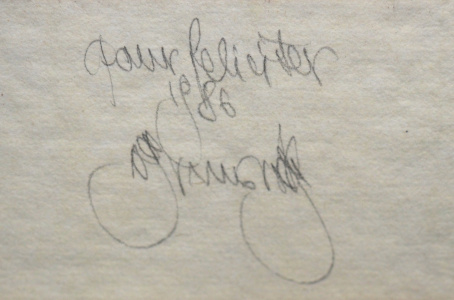 pour feliciter
1986